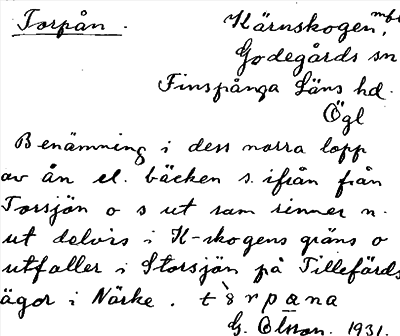 Torpån.
Kärnskogen, mfl
Godegårds sn
Finspånga Läns hd.
Ögl
Benämning i dess norra lopp
av ån el. bäcken s. ifrån från
Torsjön o s ut sam rinner n.
ut delvis i K-skogens gräns o
utfaller i Storsjön på Tillefärds
ägor i Närke. tòrpana
G. Olsson. 1931.